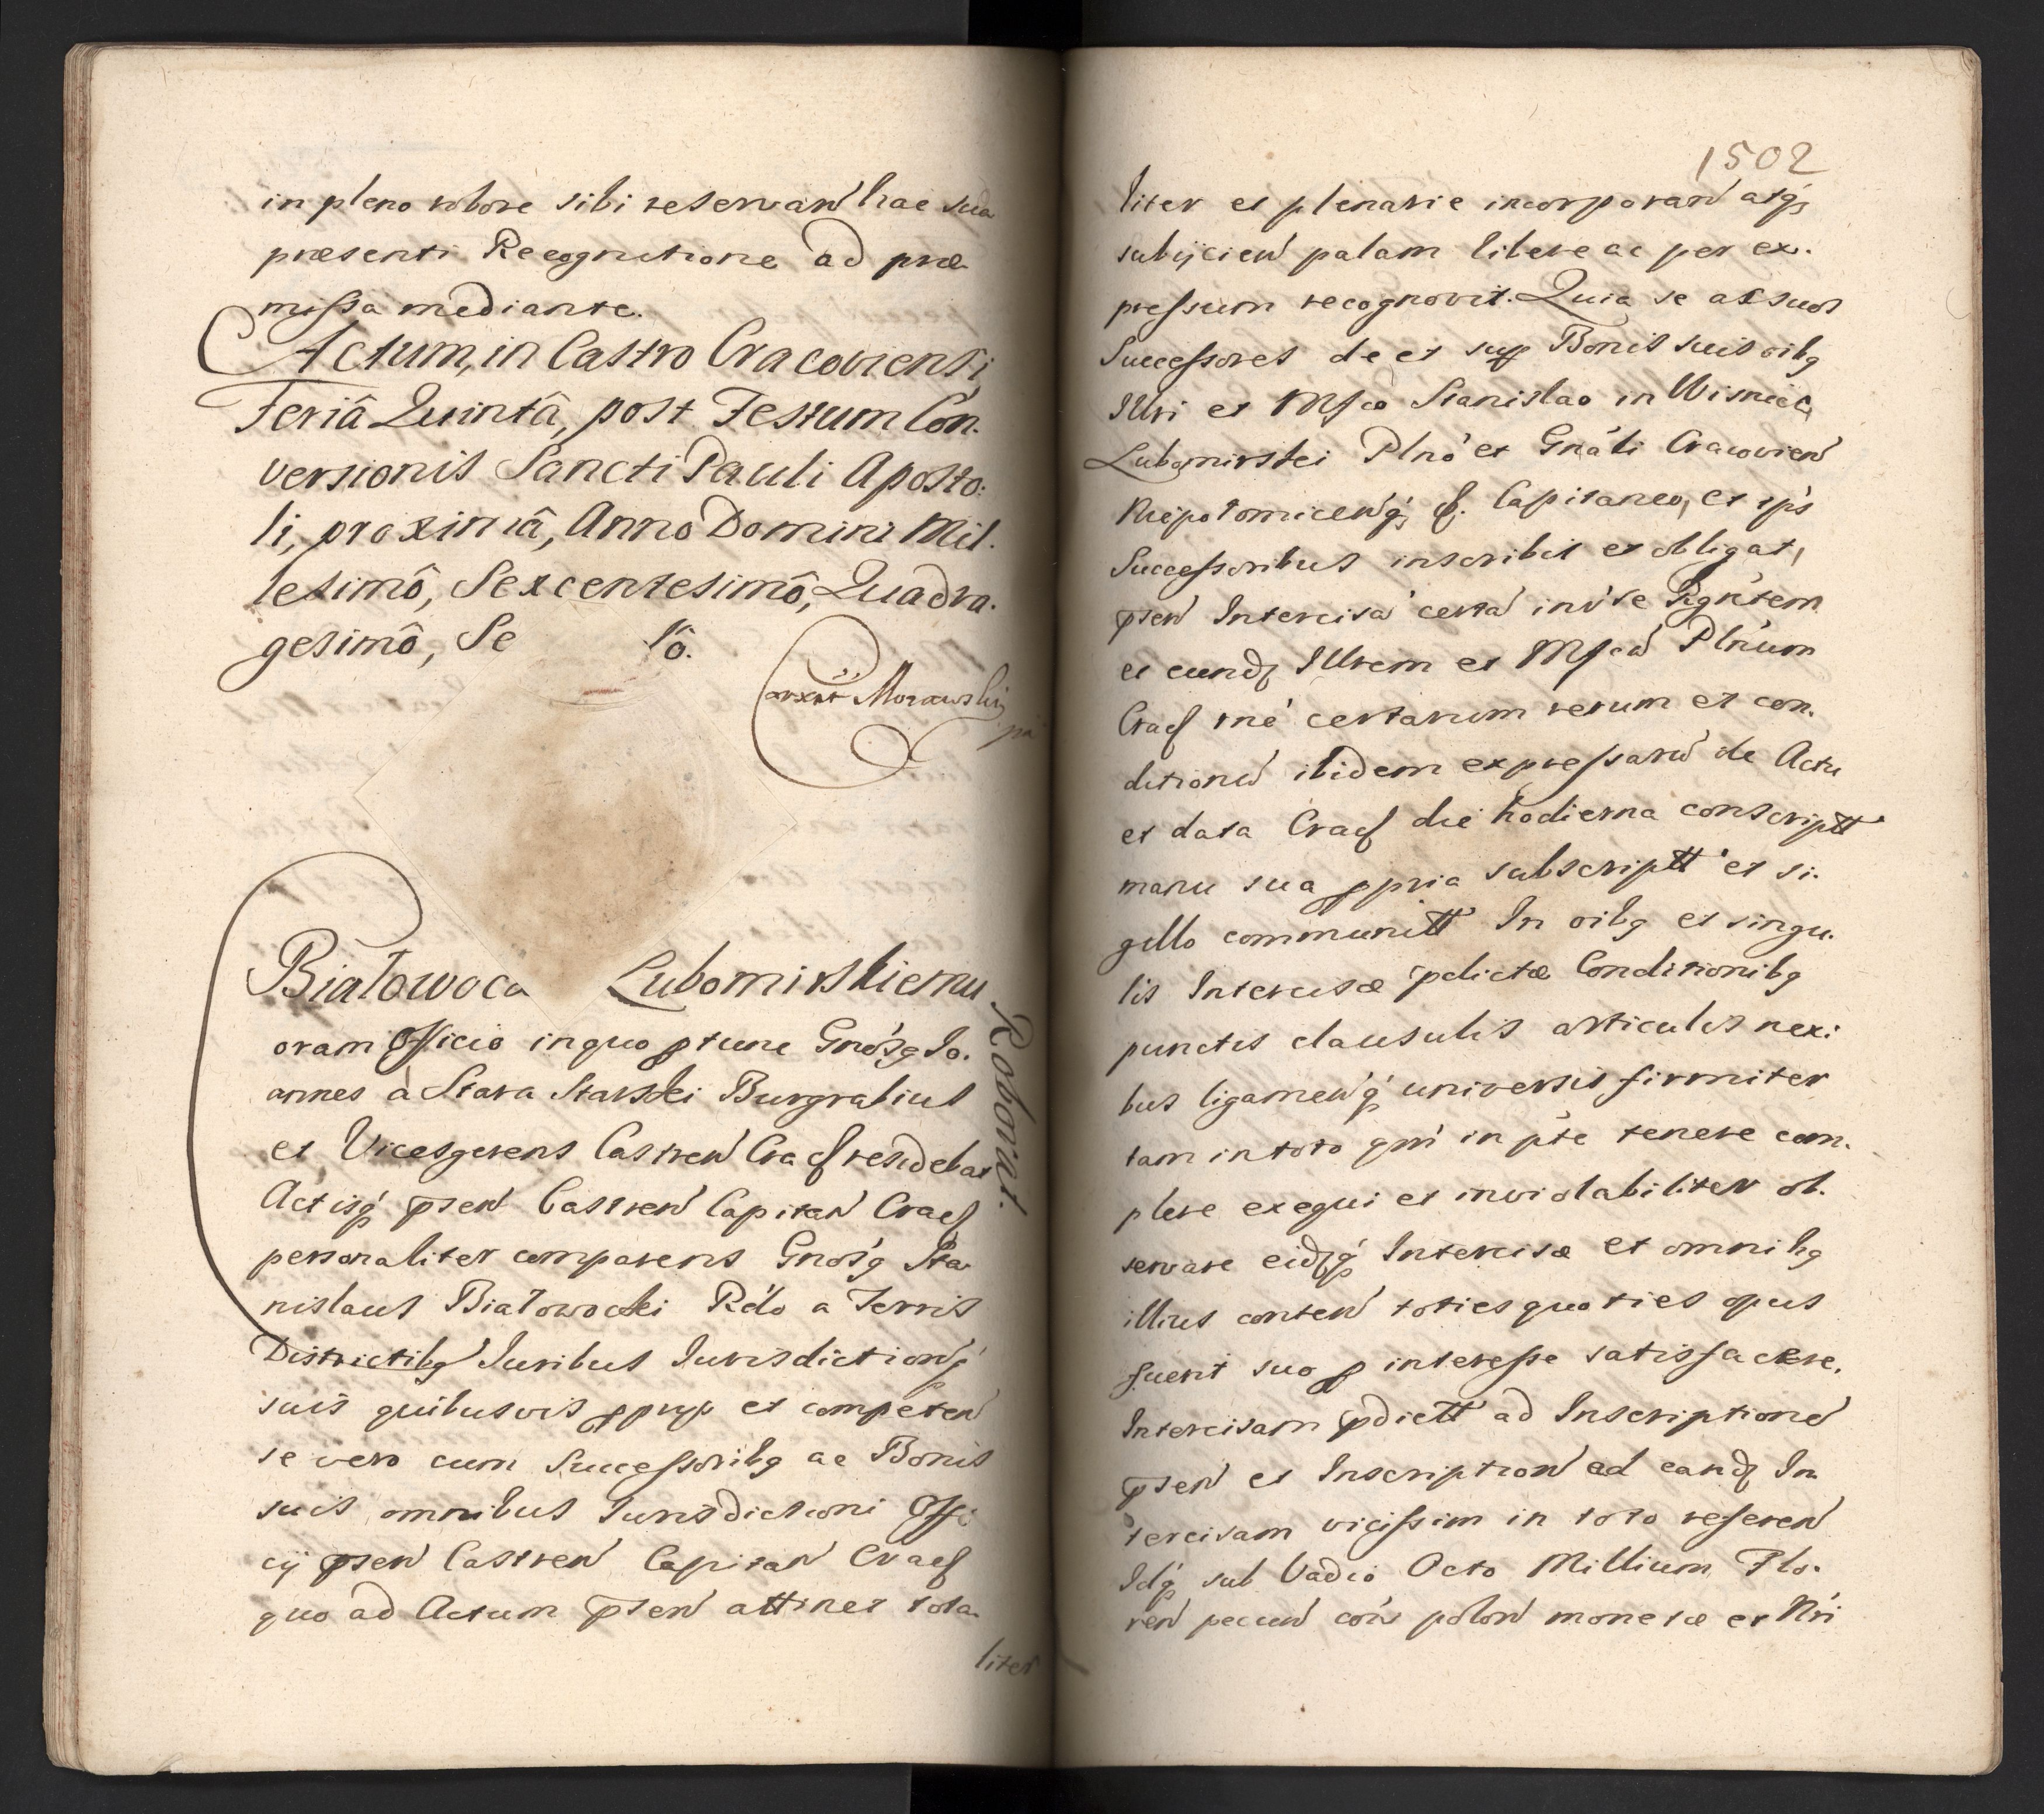 in pleno robore sibi reservan̄ hac sua
præsenti Recognitione ad præ-
missa mediante.
Actum, in Castro Cracoviensi,
Feriâ Quintâ, post Festum Con-
versionis Sancti Pauli Aposto:
li, proximâ, Anno Domini Mil-
lesimô, Sexcentesimô, Quadra-
gesimô, Se tô.
Morawski
Białowoca Lubomirskiemu
Roborat.
oram Officio in quo ptunc Gnosq Jo-
annes a Stara Starski Burgrabius
et Vicesgerens Castren̄ Cracf residebat
Actisq̨ pten̄ Castren̄ Capitan̄ Cracf
personaliter comparens Gnosq Sta-
nislaus Białowocki Rećło a Terris
Districtibq Juribus Jurisdictionq̨
suis quibusvis ppryp et competen̄
se vero cum Successoribq ac Bonis
suis omnibus Jurisdictioni Offi
cÿ pten̄ Castren̄ Capitan̄ Cracf
quo ad Actum pten̄ attinet tota-
liter
1502
liter et plenarie incorporan̄ atq̨
subÿcien̄ palam libere ac per ex-
pressum recognovit. Quia se ac suos
Successores de et sup Bonis suis oibq
Illri et Mfco Stanislao in Wisnicz
Lubomirski Plno et Gnali Cracovien̄
Niepołomicen̄q̨ &. Capitaneo, et ips
Successoribus inscribit et obligat,
pten̄ Intercisa certa int se Rgntem
et eundȩ Illrem et Mfcu Plnum
Cracf rne certarum rerum et con-
ditionū ibidem expressarū de Actu
et data Cracf die hodierna conscriptt
manu sua ppria subscriptt et si-
gillo communitt In oibq et singu-
lis Intercisæ pdictæ Conditionibq
punctis clausulis articulis nexi-
bus ligamen̄q̨ universis firmiter
tam in toto qm in pte tenere com-
plere exequi et inviolabiliter ob-
servare eidȩq̨ Intercisæ et omnibq
illius conten̄ toties quoties opus
fuerit suo p interesse satisfacere,
Intercisam pdictt ad Inscriptionē
pten̄ et Inscription̄ ad eandȩ In
tercisam vicissim in toto referen̄
Idq̨ sub Vadio Octo Millium Flo-
ren̄ pecun̄ cois polon̄ monetæ et Nri